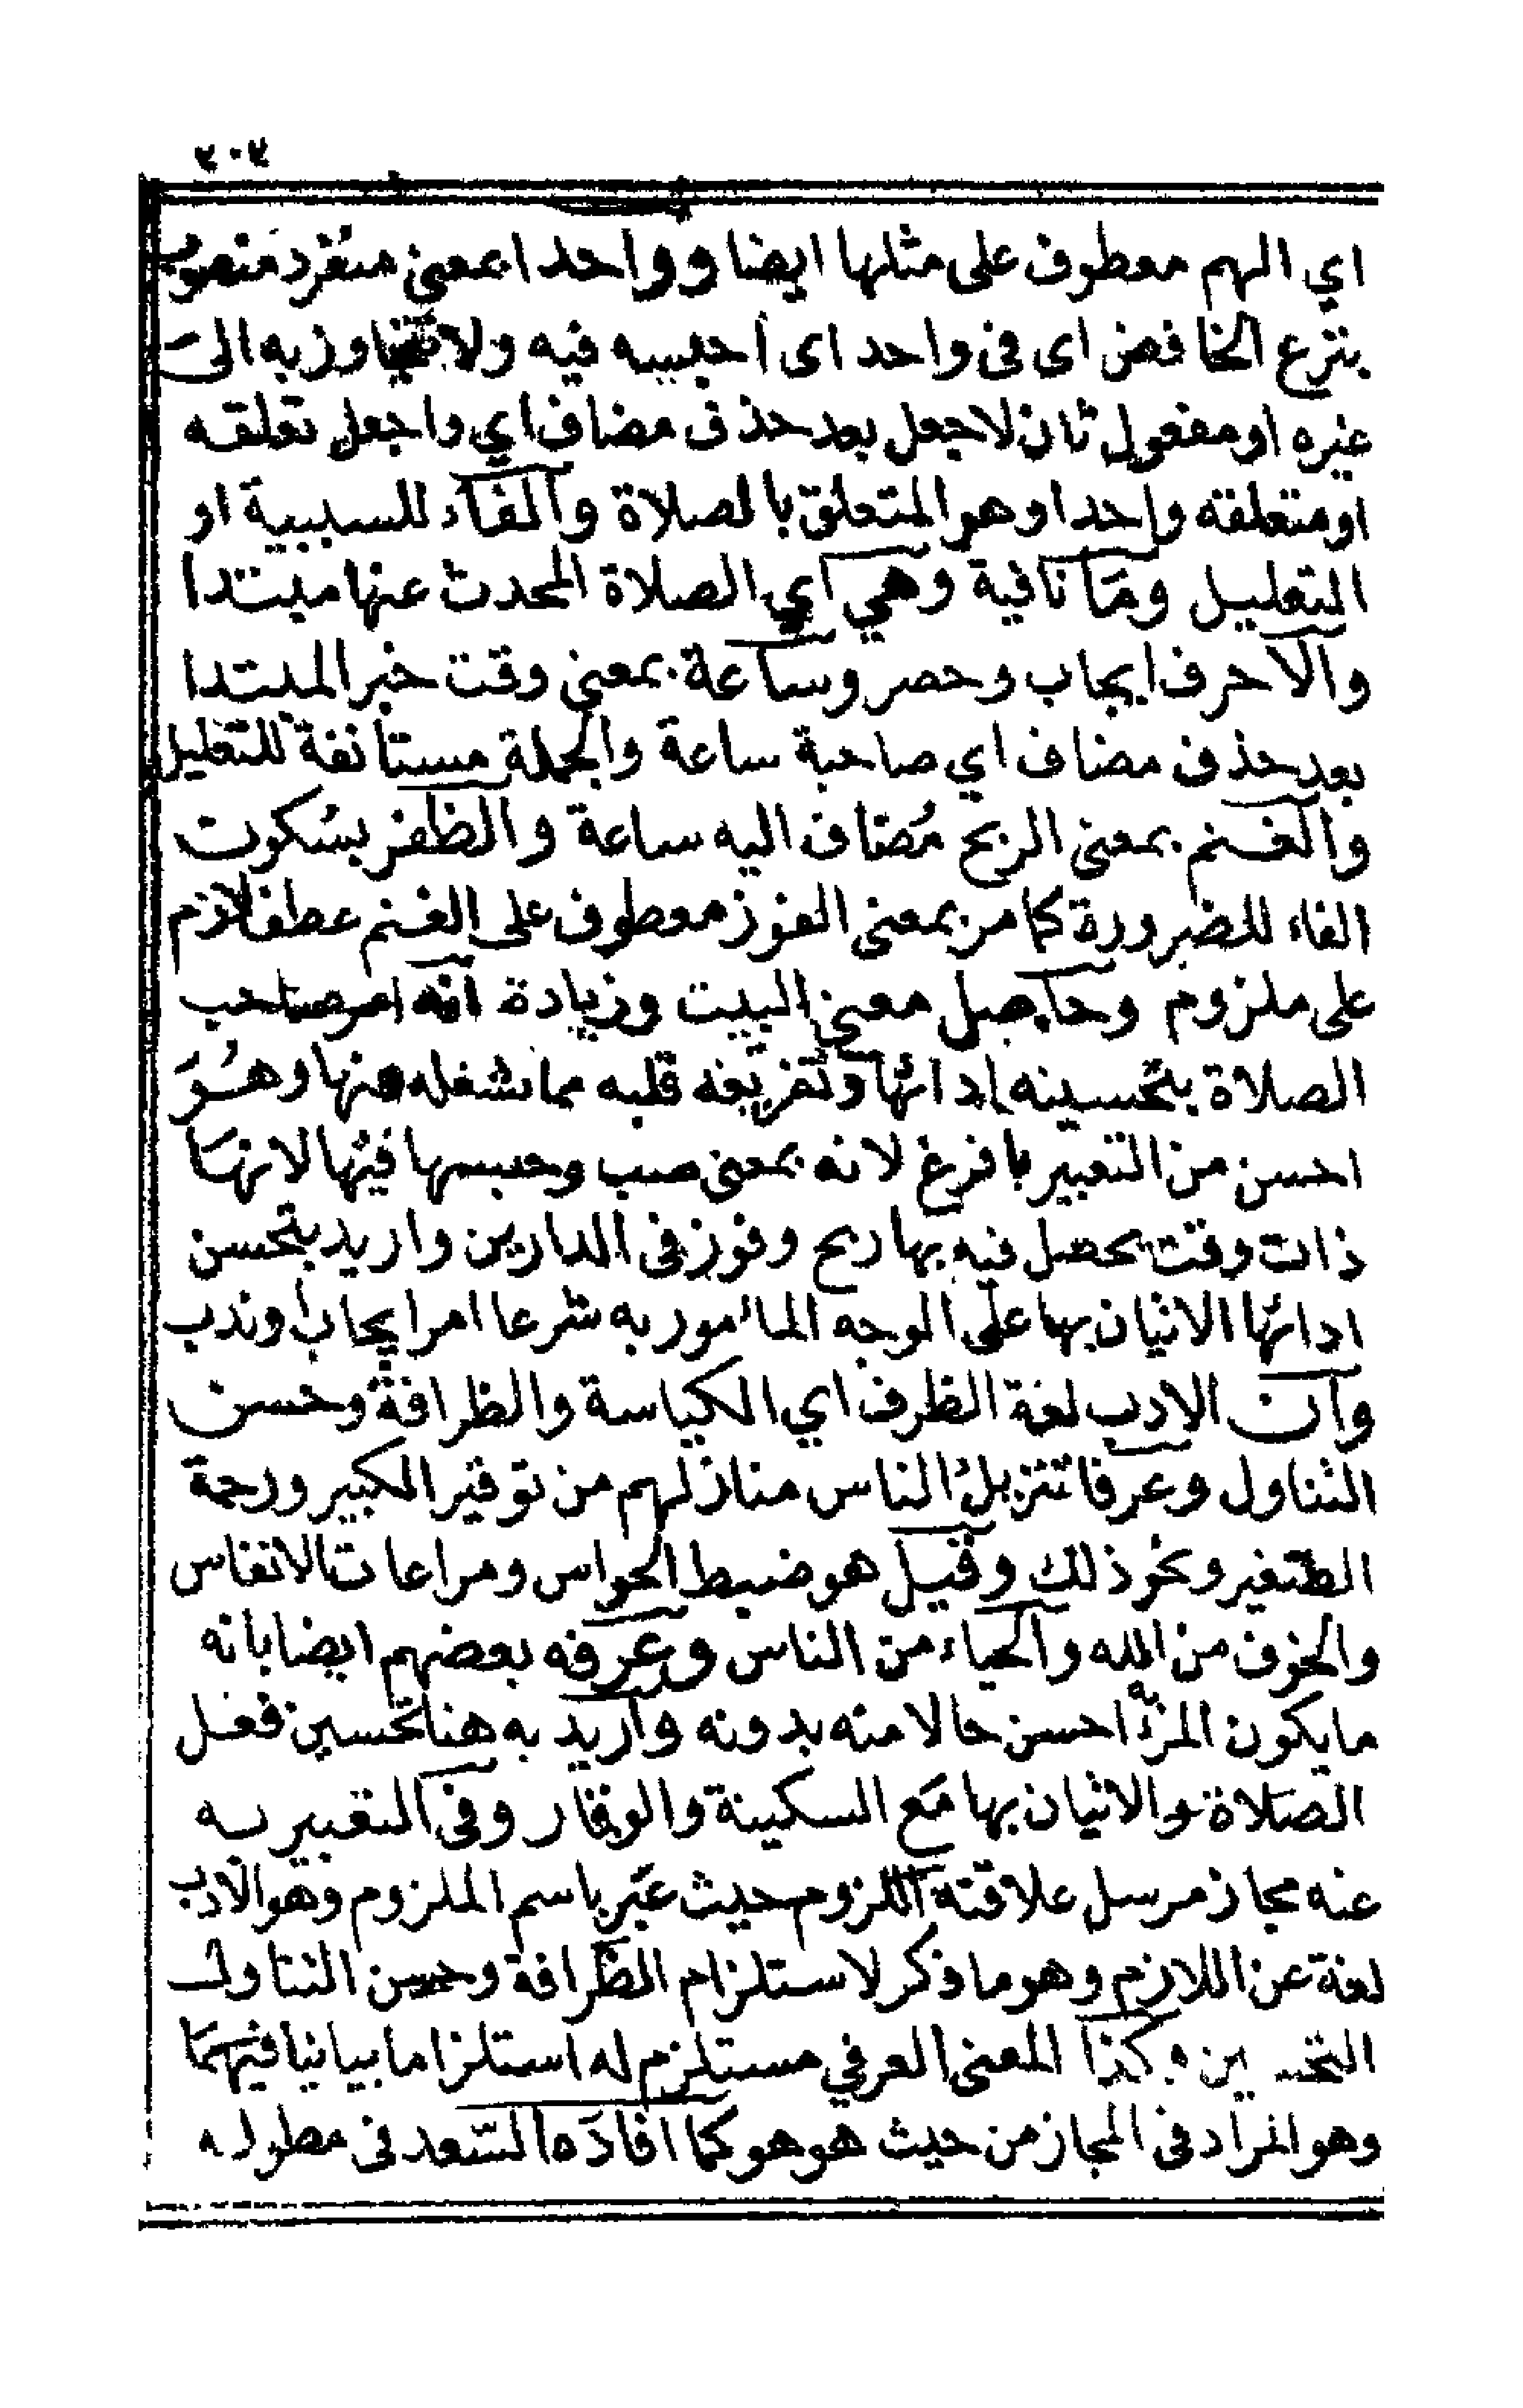 ٢٠٢
اي الهم معطوف على مثلها ايضا وواحدا بمعنى منفرد منصوب
بنزع الخافض اى فى واحد اى احبسه فيه ولا تتجاوز به الى
غيره او مفعول ثان لاجعل بعد حذف مضاف اي واجعل تعلقه
او متعلقه واحدا وهو المتعلق بالصلاة والفاء للسببية او
التعليل وما نافية وهي اي الصلاة المحدث عنها مبتدا
والا حرف ايجاب وحصر وساعة بمعنى وقت خبر المبتدا
بعد حذف مضاف اي صاحبة ساعة والجملة مستانفة للتعليل
والغنم بمعنى الربح مُضاف اليه ساعة والظفر بسُكوت
الفاء للضرورة كما مر بمعنى الفوز معطوف على الغنم عطف لازم
على ملزوم وحاصل معنى البيت وزيادة انه امر صاحب
الصلاة بتحسينه ادائها وتفريغه قلبه مما نشغله عنها وهُوَ
احسن من التعبير بافرغ لانه بمعنى صب وحبسها فيها لانهَا
ذات وقت يحصل فيه بها ربح وفوز فى الدارين واريد بتحسن
ادائها الاتيان بها على الوجه المامور به شرعا امر ايجاب او ندب
وان الادب لغة الظرف اي الكياسة والظرافة وحسن
التناول وعرفا تنزيل الناس منازلهم من توقير الكبير ورحمة
الصغير ونحو ذلك وقيل هو ضبط الحواس ومراعات الانفاس
والخوف من الله والحياء من الناس وعرفه بعضهم ايضا بانه
ما يكون المرء احسن حالا منه بدونه واريد به هنا تحسين فعل
الصَلاة والاتيان بها مَع السكينة والوقار وفى التعبير به
عنه مجاز مرسل علاقته اللزوم حيث عبّر باسم الملزوم وهو الادب
لغة عن اللازم وهو ما ذكر لاستلزام الظرافة وحسن التناول
التحسين وكذا المعنى العرفي مستلزم له استلزاما بيانيا فيهمَا
وهو المراد فى المجاز من حيث هو هو كما افادَه السّعد فى مطوله